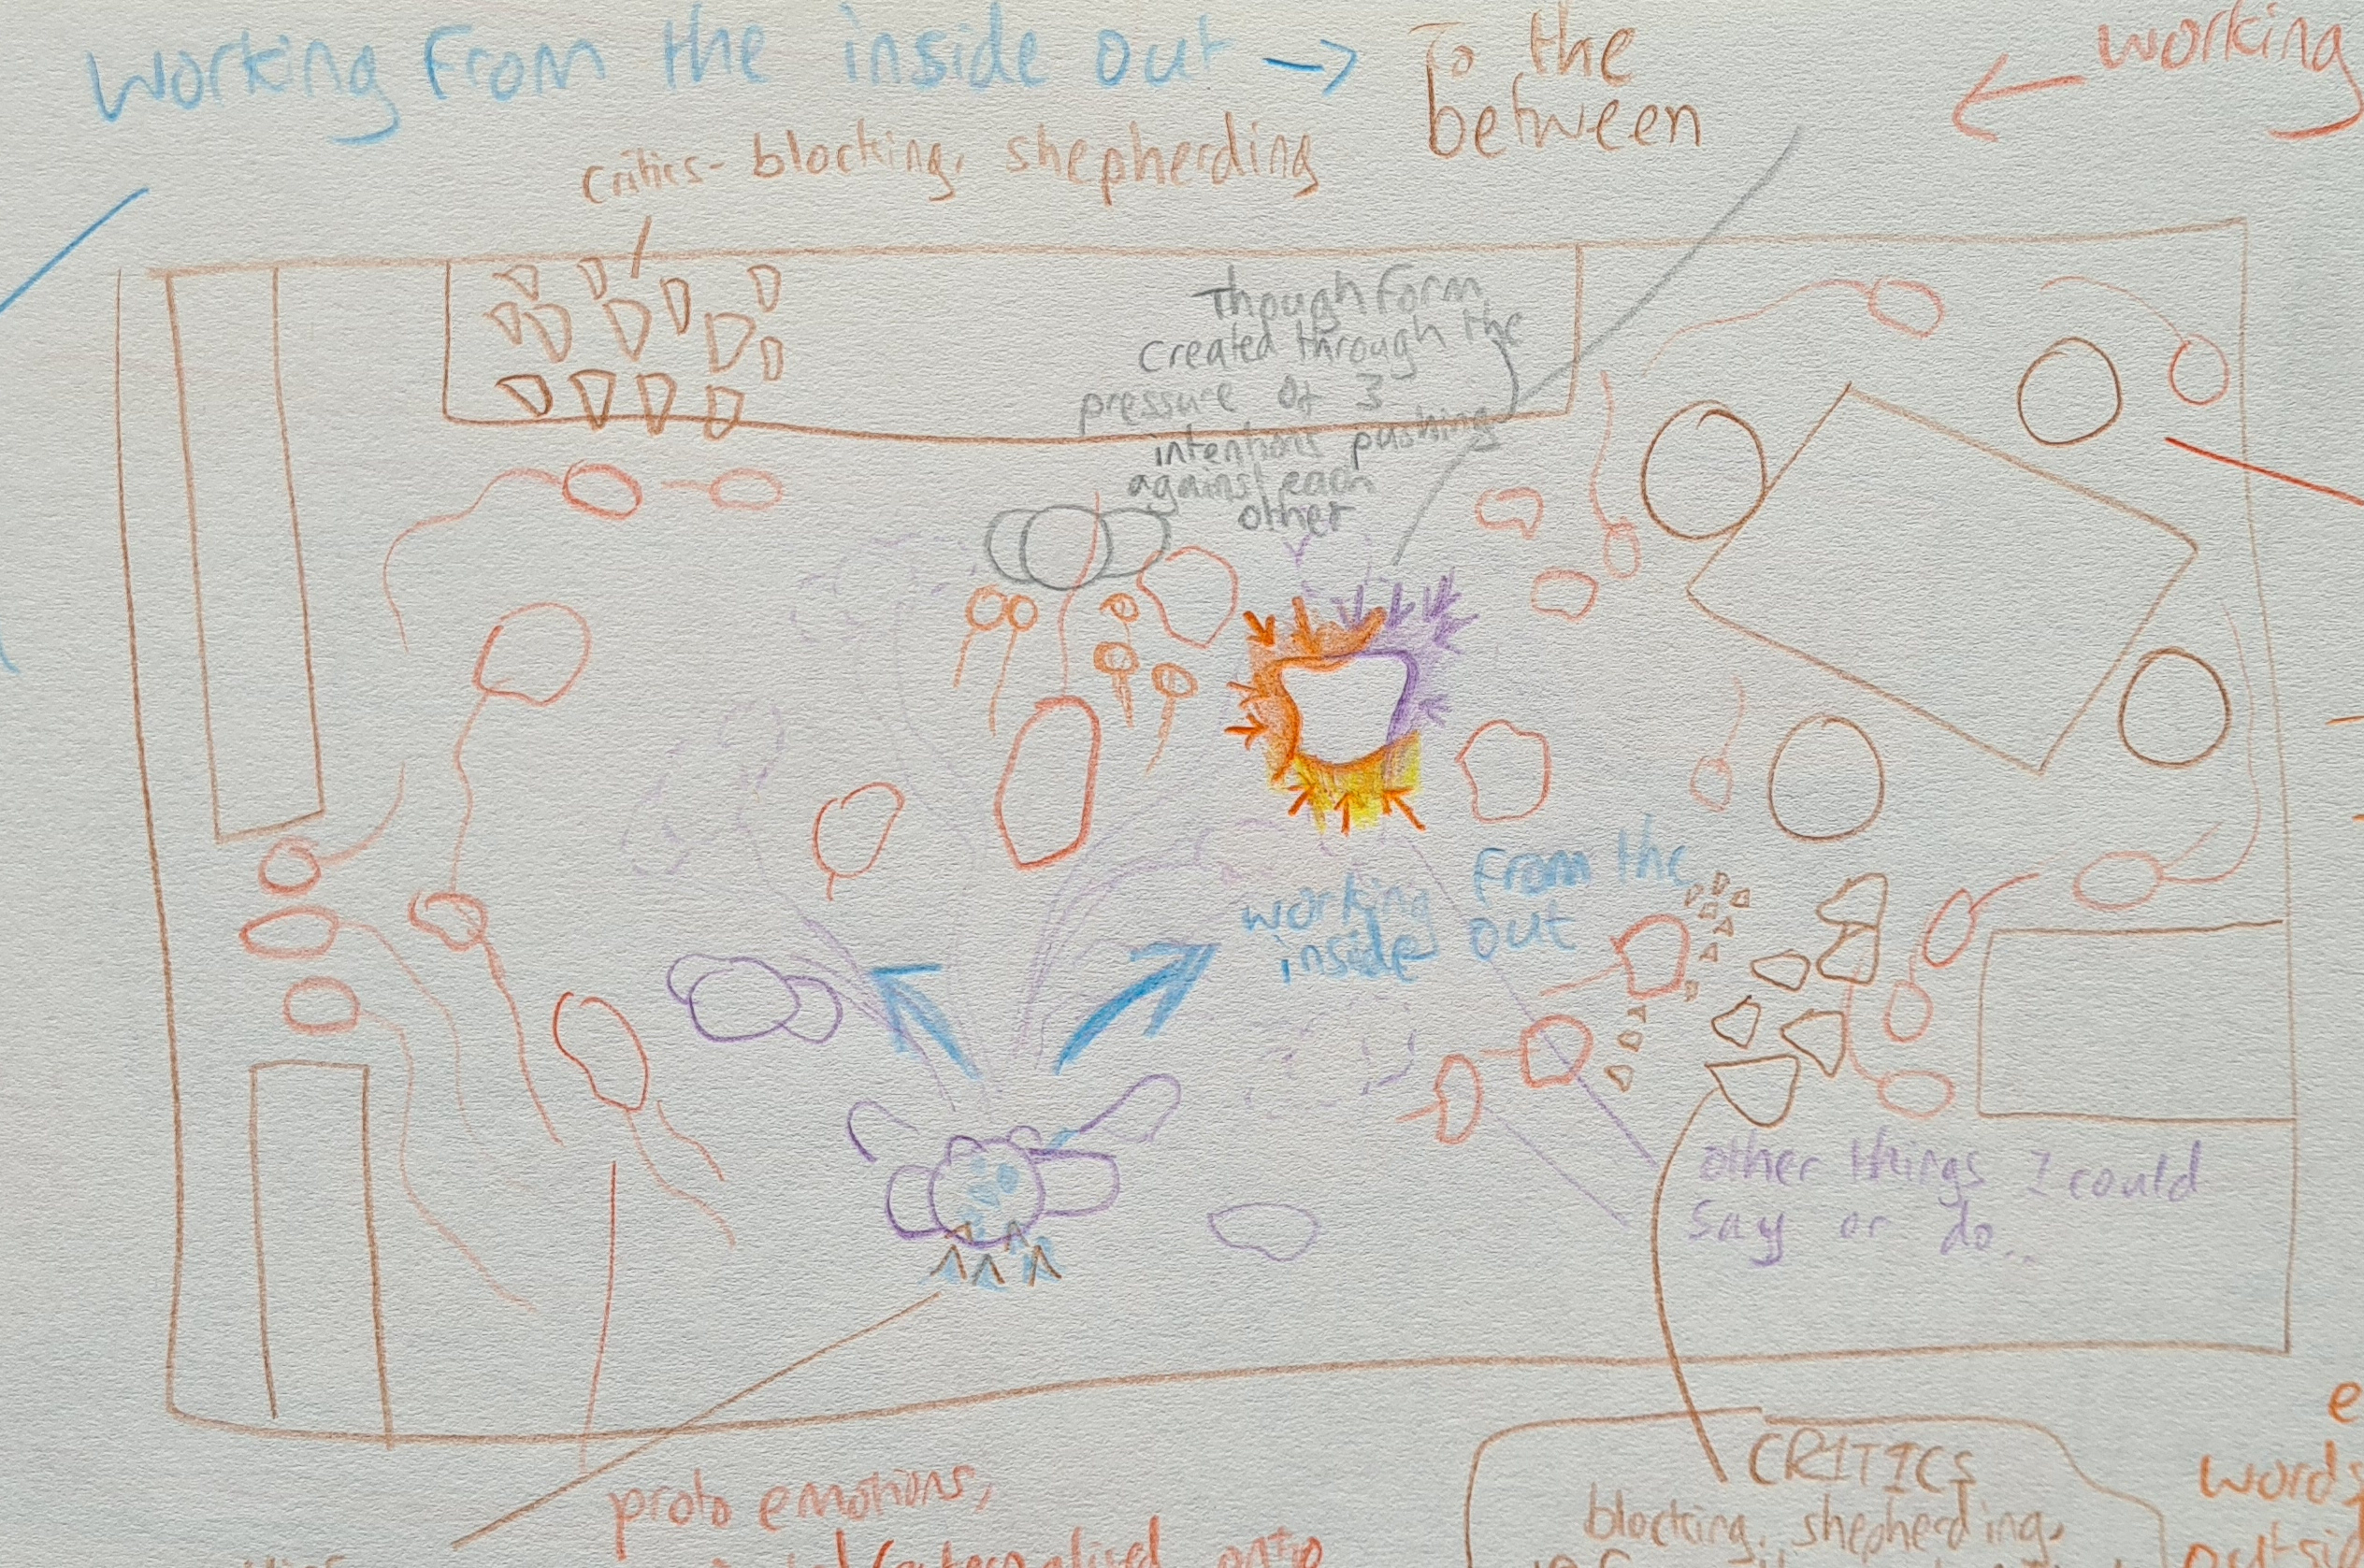 Working From the inside out → To the
between
← working
Critics - blocking, shepherding
Though Form
created through the
pressure of 3
intentions pushing
against each
other
working From the
inside out
other things I could
say or do...
proto emotions,
onto
CRITICS
blocking, shepherding,
words